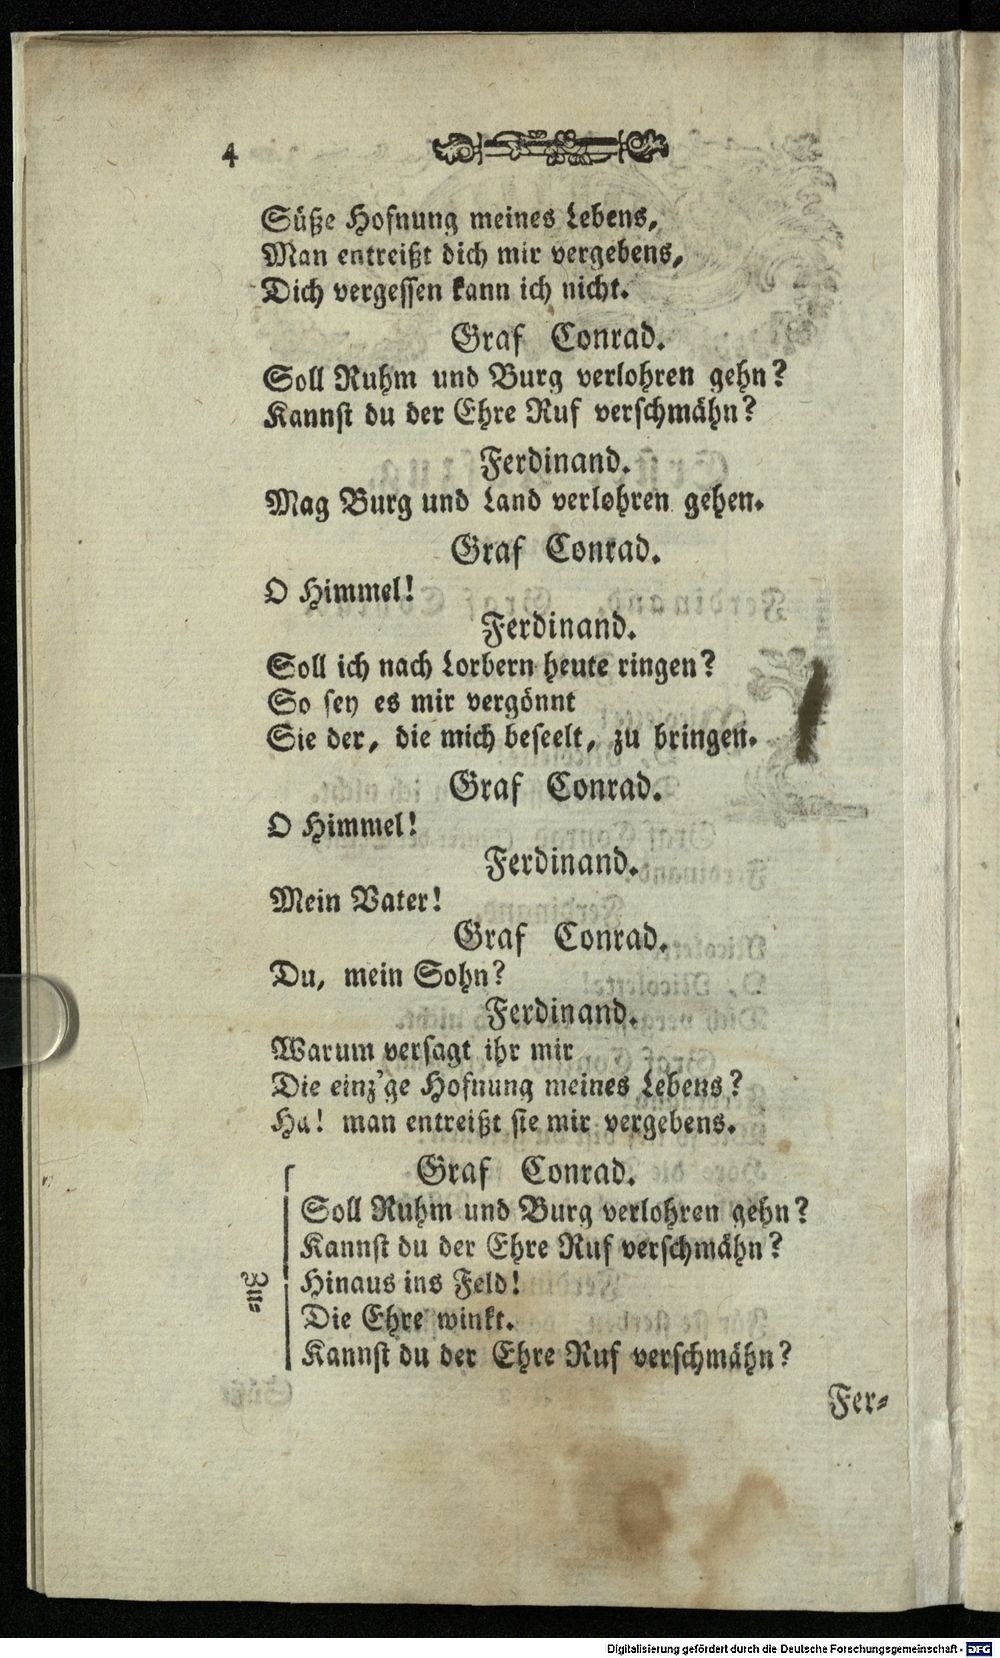 4
Süße Hofnung meines Lebens,
Man entreißt dich mir vergebens,
Dich vergessen kann ich nicht.
Graf Conrad.
Soll Ruhm und Burg verlohren gehn?
Kannst du der Ehre Ruf verschmähn?
Ferdinand.
Mag Burg und Land verlohren gehen.
Graf Conrad.
O Himmel!
Ferdinand.
Soll ich nach Lorbern heute ringen?
So sey es mir vergönnt
Sie der, die mich beseelt, zu bringen.
Graf Conrad.
O Himmel!
Ferdinand.
Mein Vater!
Graf Conrad.
Du, mein Sohn?
Ferdinand.
Warum versagt ihr mir
Die einz'ge Hofnung meines Lebens?
Ha! man entreißt sie mir vergebens.
Graf Conrad.
Soll Ruhm und Burg verlohren gehn?
Kannst du der Ehre Ruf verschmähn?
Hinaus ins Feld!
Die Ehre winkt.
Kannst du der Ehre Ruf verschmähn?
Zu-
Fer-
Digitalisierung gefördert durch die Deutsche Forschungsgemeinschaft - DFG